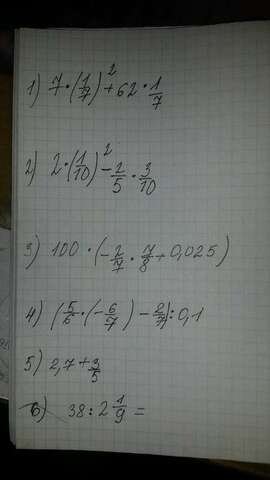 1) 7·(1/7)²+62·1/7
2) 2·(1/10)²-2/5·3/10
3) 100·(-2/7·7/8+0,025)
4) (5/6·(-6/7)-2/7):0,1
5) 2,7+3/5
6) 38:2 1/9=